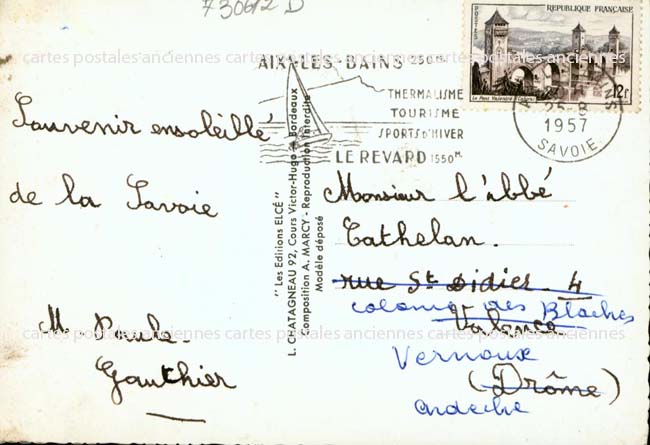 73062 D
AIX-LES-BAINS 250 M.
THERMALISME
TOURISME
SPORTS D'HIVER
LE REVARD 1550 M.
POSTES
REPUBLIQUE FRANÇAISE
12F
Le Pont Valentré Cahors
25-8
1957
SAVOIE
cartes postales anciennes cartes postales anciennes cartes postales anciennes
Souvenir ensoleillé
de la Savoie
M. Paule
Gauthier
" Les Editions ELCÉ "
L. CHATAGNEAU 92, Cours Victor-Hugo Bordeaux
Composition A. MARCY - Reproduction Interdite
Modèle déposé
Monsieur l'abbé
Cathelan
rue St Didier 4
colonie des Blaches
Valence
Vernoux
(Drôme)
Ardeche
cartes postales anciennes cartes postales anciennes cartes postales anciennes